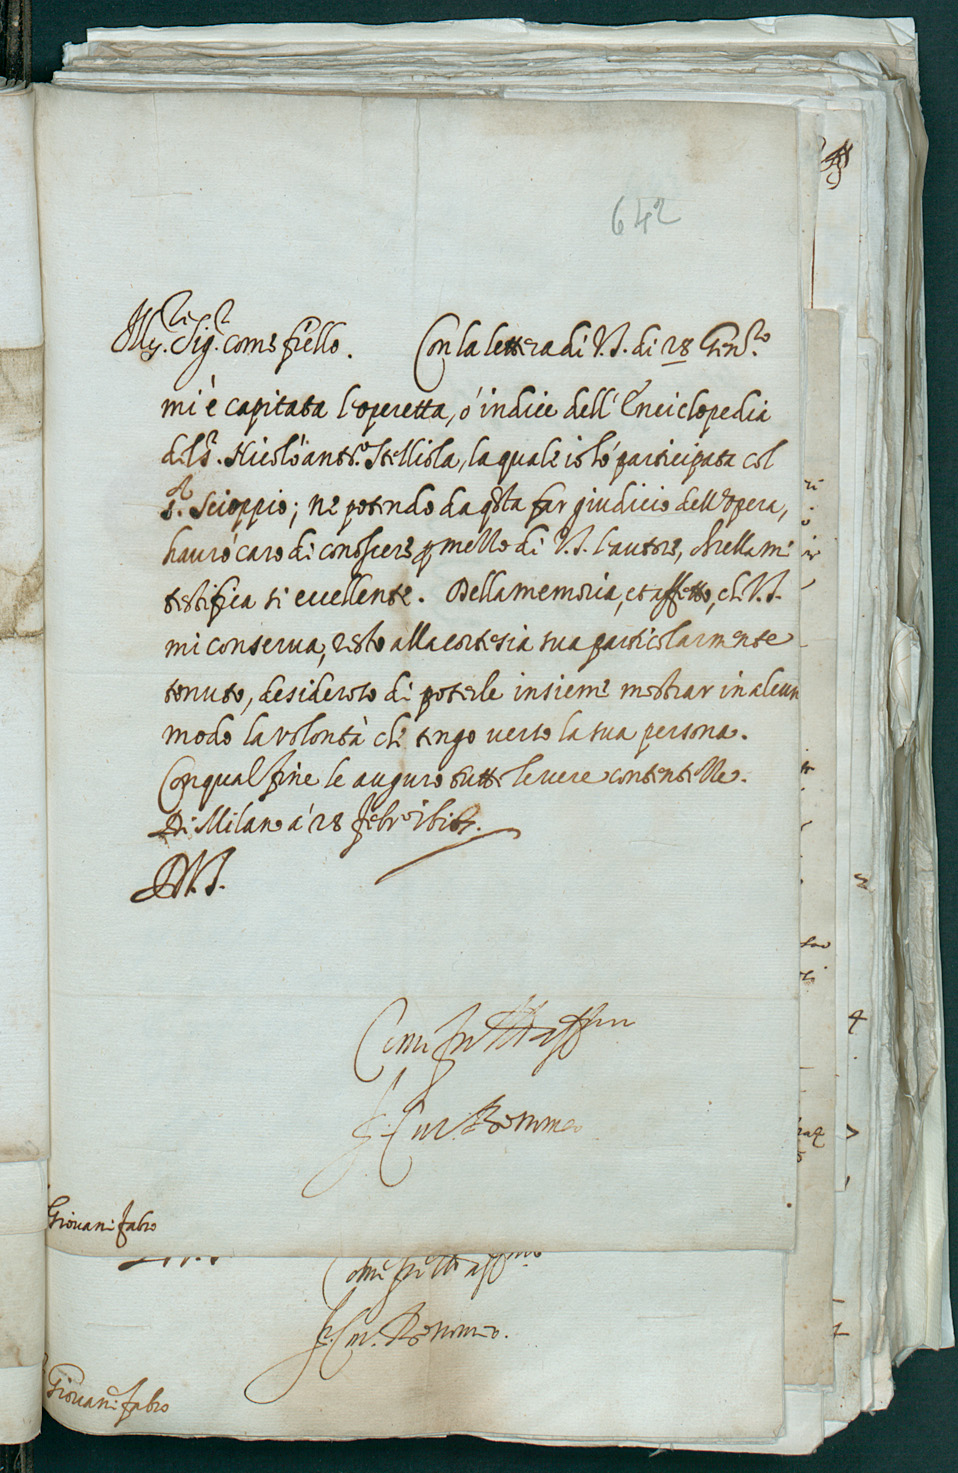 642
Ill.re Sig.r come f.rello. Con la lettera di V.S. di 28 Gen.ro
mi è capitata l'operetta, ó indice dell'Enciclopedia
del S.r Nicolò ant.o Stelliola, la quale io hó participata col
S.r Scioppio; ne potendo da q.sta far giudicio dell'opera,
hauró caro di conoscere p mezzo di V.S. l'autore, ch'ella mi
testifica sì eccellente. Della memoria, et affetto, ch V.S.
mi conserua, resto alla cortesia sua particolarmente
tenuto, desideroso di poterle insieme mostrar in alcun
modo la volontà che tengo verso la sua persona.
Con qual fine le auguro tutte le vere contentezze.
Di Milano á 28 Febr.o
D V.S.
Come fr.ello aff.mo
F. Car. Borromeo
Giouani fabro
Come fr.ello aff.mo
F. Car. Borromeo.
Giouani fabro